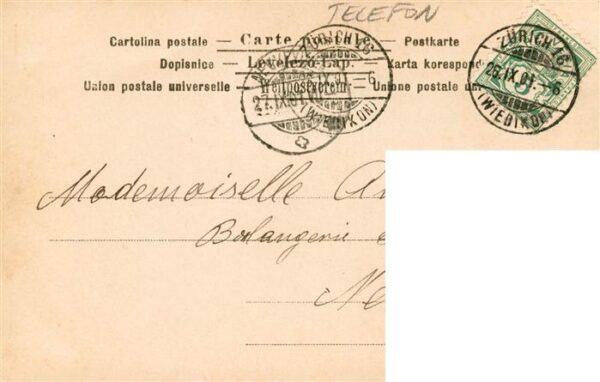 TELEFON
Cartolina postale — Carte Postale — Postkarte
Dopisnice — Levelező-Lap. — Karta korespond
Union postale universelle — Weltpostverein — Unione postale uni
ZÜRICH 16
26.IX.01.–6
(WIEDIKON)
ZÜRICH 16
IX.01.–6
(WIEDIKON)
27.IX.01.
5
Mademoiselle An
Boulangerie
Ne